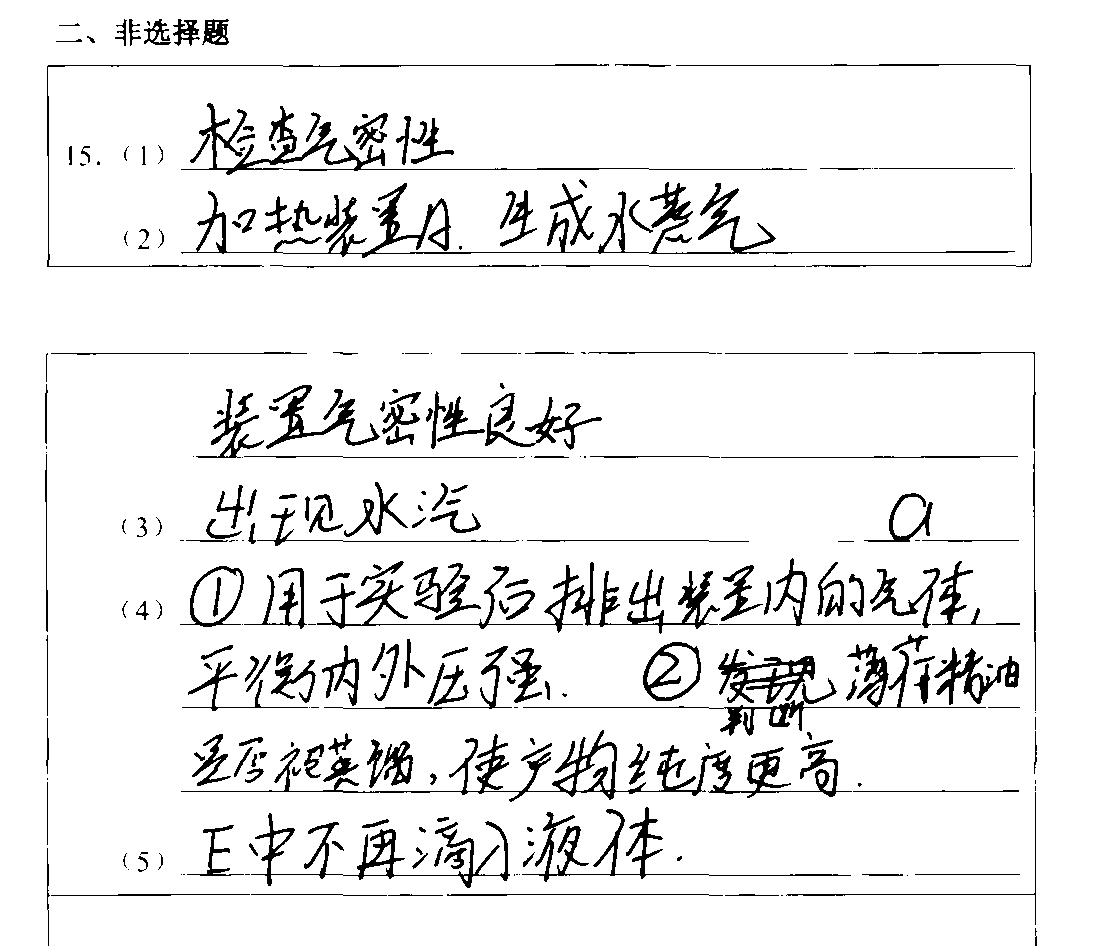 二、非选择题
15.（1）检查气密性
（2）加热装置A. 生成水蒸气
装置气密性良好
（3）出现水汽 a
（4）①用于实验后排出装置内的气体，
平衡内外压强. ② 判断 薄荷精油
是否被蒸馏，使产物纯度更高.
（5）E中不再滴入液体.